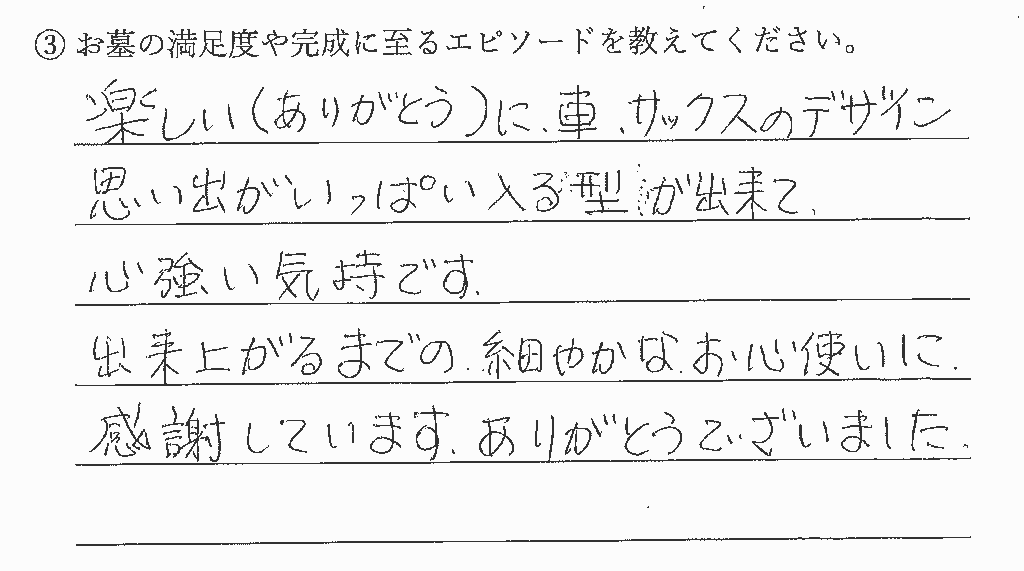 ③ お墓の満足度や完成に至るエピソードを教えてください。
楽しい(ありがとう)に、車、サックスのデザイン
思い出がいっぱい入る型が出来て、
心強い気持です。
出来上がるまでの、細やかな、お心使いに、
感謝しています。ありがとうございました。